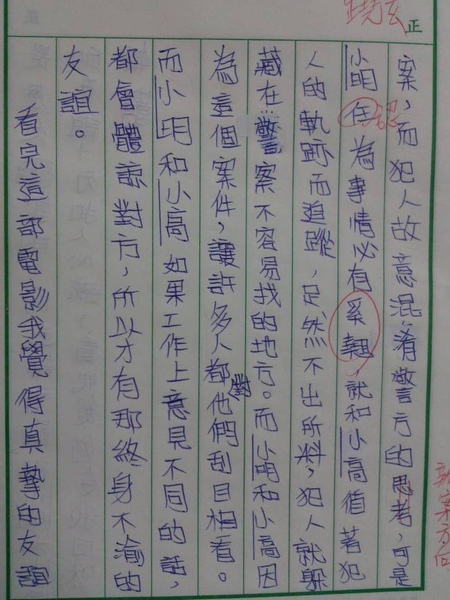 正
案，而犯人故意混淆警方的思考，可是
小明任為事情必有奚翹，就和小高值著犯
人的軌跡而追蹤，足然不出所料，犯人就躲
藏在警案不容易找的地方。而小明和小高因
為這個案件，讓許多人都對他們刮目相看。
而小明和小高如果工作上意見不同的話，
都會體諒對方，所以才有那終身不渝的
友誼。
看完這部電影我覺得真摯的友誼
認
辦案方向